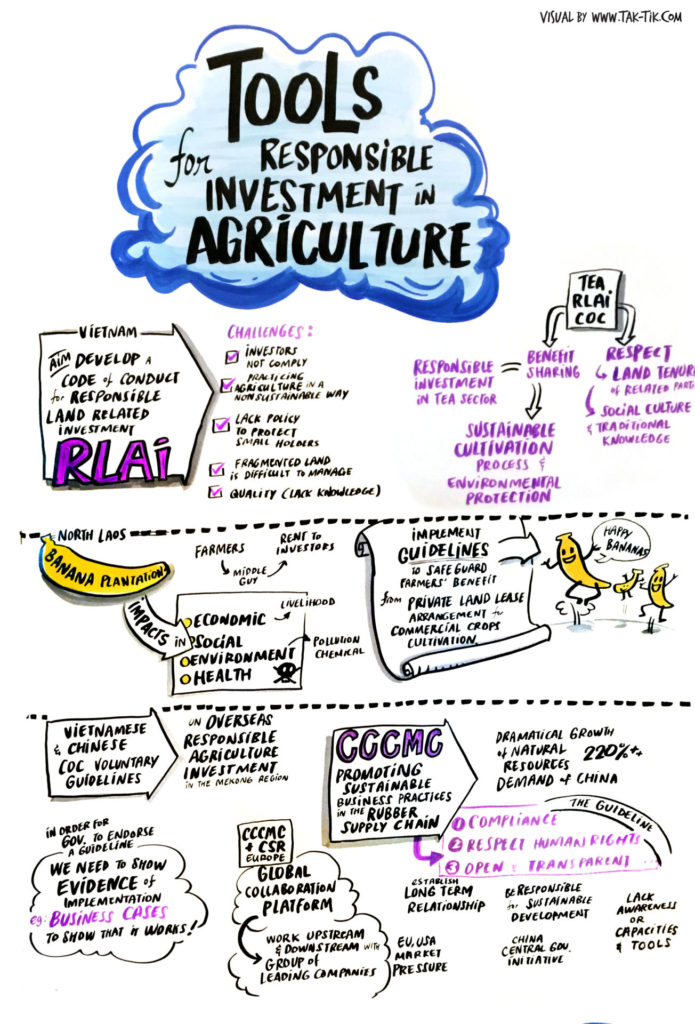 VISUAL BY WWW.TAK-TIK.COM
TOOLS
for RESPONSIBLE
INVESTMENT in
AGRICULTURE
VIETNAM
AIM DEVELOP A
CODE of CONDUCT
for RESPONSIBLE
LAND RELATED
INVESTMENT
RLAi
CHALLENGES:
INVESTORS
NOT COMPLY
PRACTICING
AGRICULTURE IN A
NONSUSTAINABLE WAY
LACK POLICY
TO PROTECT
SMALL HOLDERS
FRAGMENTED LAND
is DIFFICULT to MANAGE
QUALITY (LACK KNOWLEDGE)
TEA
RLAI
COC
RESPONSIBLE
INVESTMENT
IN TEA SECTOR
=
BENEFIT
SHARING
SUSTAINABLE
CULTIVATION
PROCESS &
ENVIRONMENTAL
PROTECTION
RESPECT
LAND TENUR
of RELATED PARTI
SOCIAL CULTURE
& TRADITIONAL
KNOWLEDGE
NORTH LAOS
BANANA PLANTATIONS
IMPACTS in
FARMERS
MIDDLE
GUY
RENT TO
INVESTORS
ECONOMIC
SOCIAL
ENVIRONMENT
HEALTH
LIVELIHOOD
POLLUTION
CHEMICAL
IMPLEMENT
GUIDELINES
to SAFEGUARD
FARMERS' BENEFIT
from PRIVATE LAND LEASE
ARRANGEMENT for
COMMERCIAL CROPS
CULTIVATION
HAPPY
BANANAS
VIETNAMESE
& CHINESE
COC VOLUNTARY
GUIDELINES
ON OVERSEAS
RESPONSIBLE
AGRICULTURE
INVESTMENT
IN THE MEKONG REGION
CCCMC
PROMOTING
SUSTAINABLE
BUSINESS PRACTICES
IN THE RUBBER
SUPPLY CHAIN
DRAMATICAL GROWTH
of NATURAL
RESOURCES 220%++
DEMAND of CHINA
THE GUIDELINE
1 COMPLIANCE
2 RESPECT HUMAN RIGHTS
3 OPEN & TRANSPARENT ...
IN ORDER FOR
GOV. TO ENDORSE
A GUIDELINE
WE NEED TO SHOW
EVIDENCE of
IMPLEMENTATION
eg: BUSINESS CASES
TO SHOW THAT it WORKS!
CCCMC
+ CSR
EUROPE
GLOBAL
COLLABORATION
PLATFORM
WORK UPSTREAM
& DOWNSTREAM WITH
GROUP of
LEADING COMPANIES
ESTABLISH
LONG TERM
RELATIONSHIP
EU, USA
MARKET
PRESSURE
BE RESPONSIBLE
for SUSTAINABLE
DEVELOPMENT
CHINA
CENTRAL GOV.
INITIATIVE
LACK
AWARENESS
OR
CAPACITIES
& TOOLS